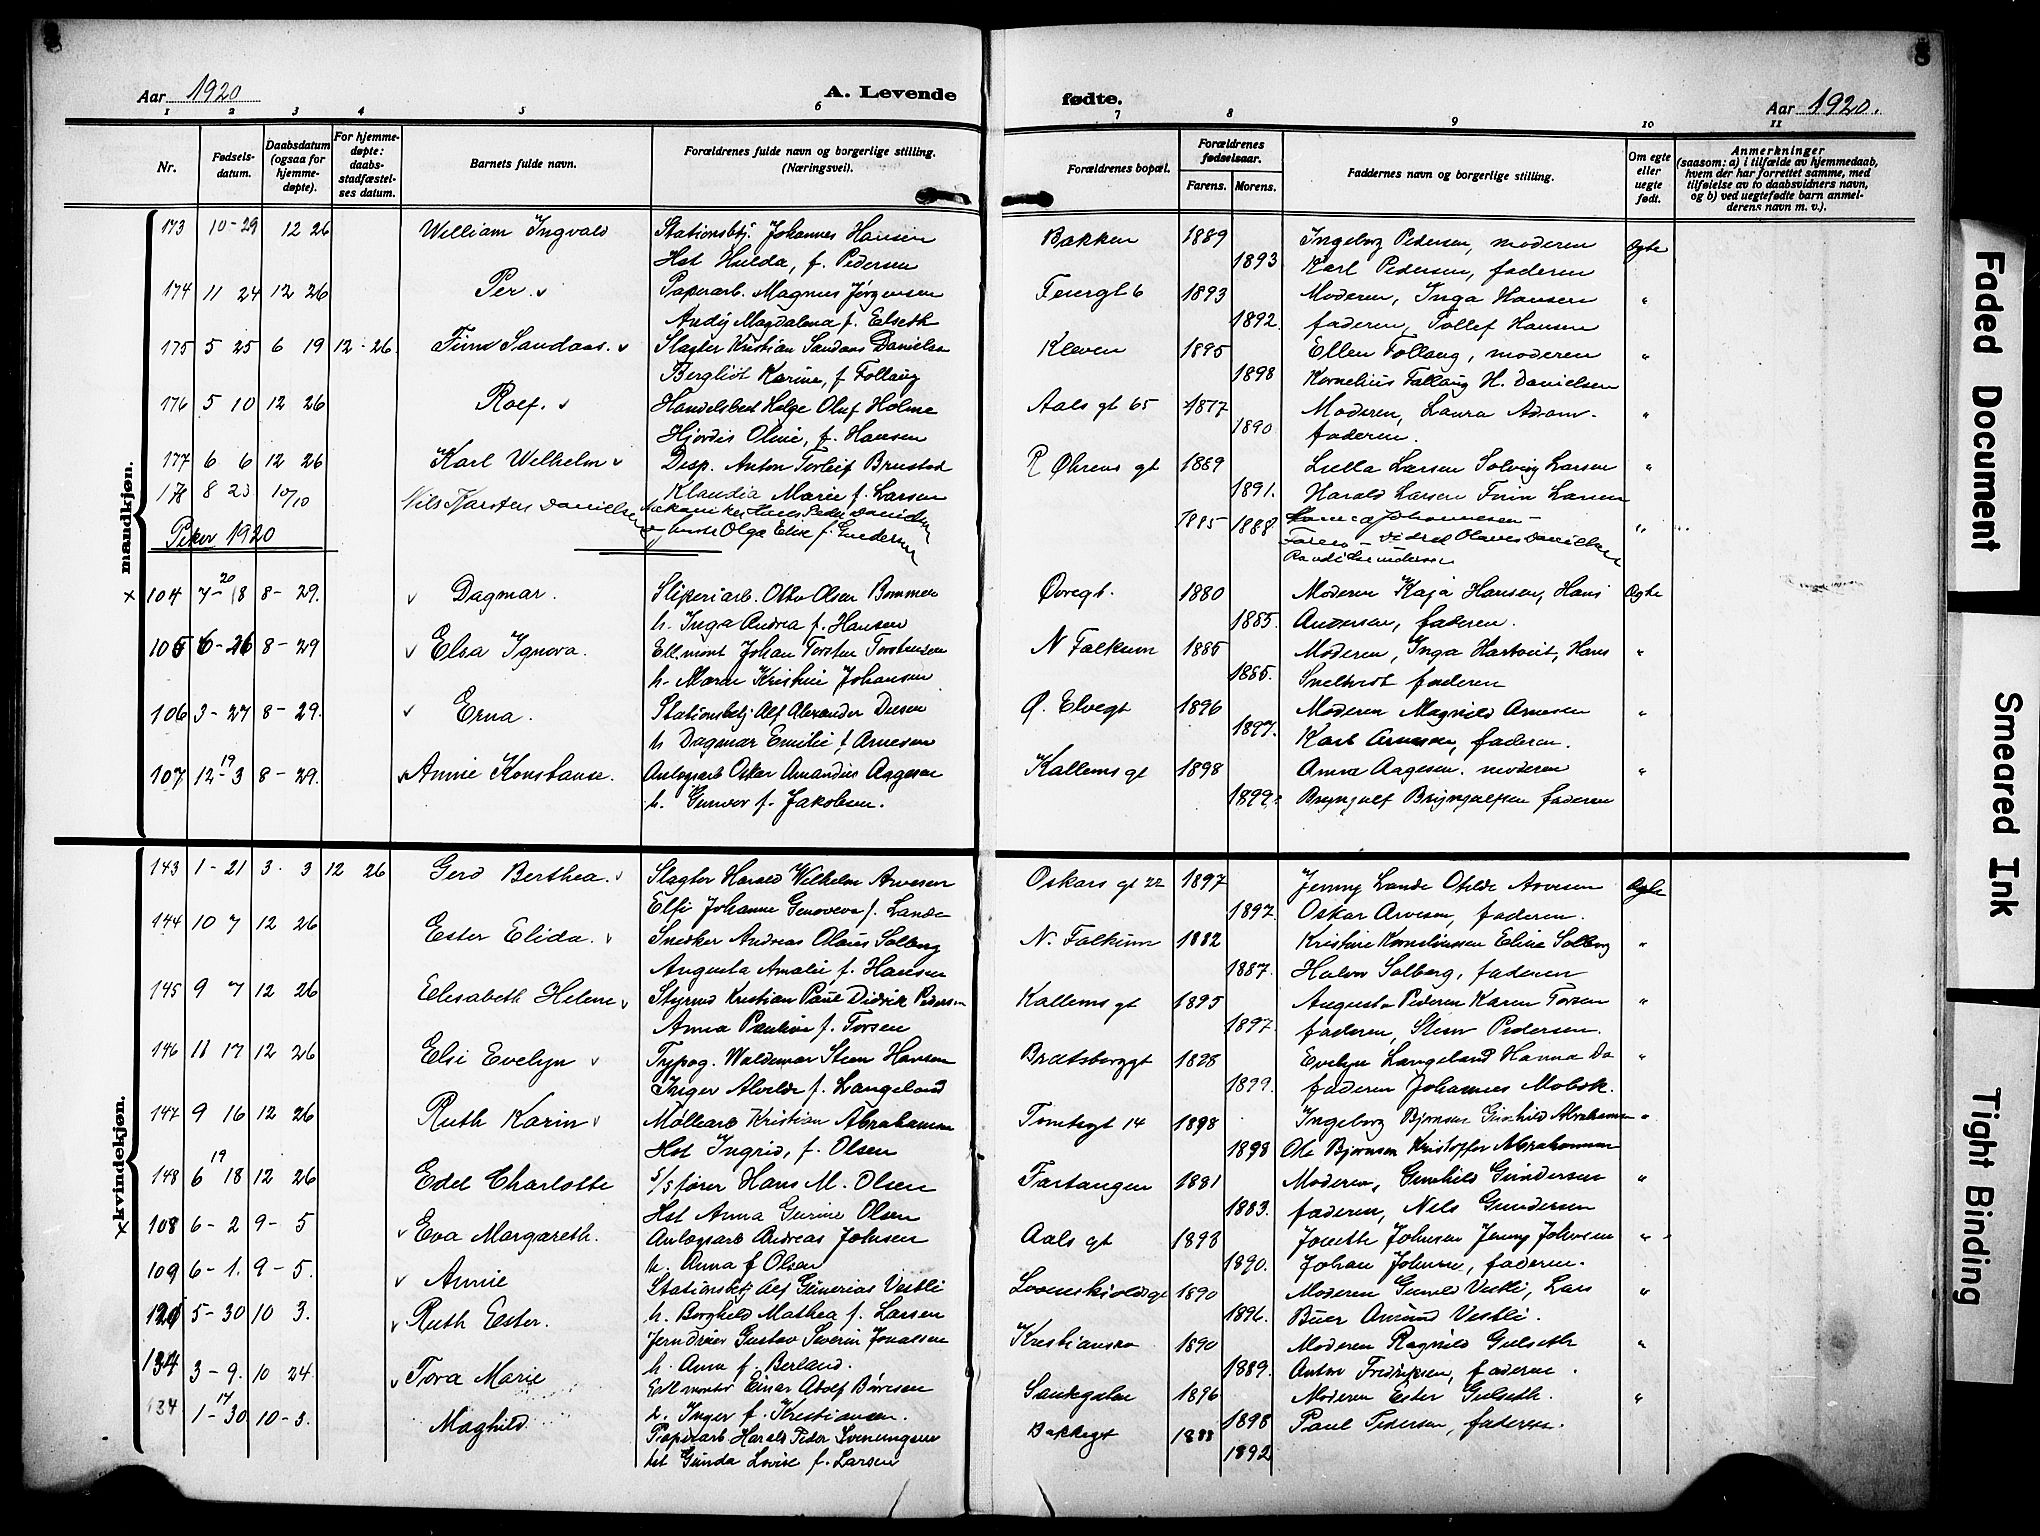 Aar 1920
A. Levende fødte.
Aar 1920.
1 2 3 4 5 6 7 8 9 10 11
Nr.
Fødsels-datum.
Daabsdatum (ogsaa for hjemme-døpte).
For hjemme-døpte: daabs-stadfæstel-ses datum.
Barnets fulde navn.
Forældrenes fulde navn og borgerlige stilling. (Næringsvei).
Forældrenes bopæl.
Forældrenes fødselsaar.
Farens. Morens.
Faddernes navn og borgerlige stilling.
Om egte eller uegte født.
Anmerkninger (saasom: a) i tilfælde av hjemmedaab, hvem der har forrettet samme, med tilføielse av to daabsvidners navn, og b) ved uegtefødte barn anmel-derens navn m. v.).
mandkjøn.
173 10-29 12 26 William Ingvald Stationsbtj. Johannes Hansen Bakken 1889 Ingeborg Pedersen, moderen Egte
Hst Hulda, f. Pedersen 1893 Karl Pedersen, faderen
174 11 24 12 26 Per Papirarb. Magnus Jørgensen 1893 Moderen, Inga Hansen "
Magdalena f. Elseth 1892. faderen, Tollef Hansen
175 5 25 6 19 12-26. Finn Sandaas. Slagter Kristian Sandaas Danielsen Kleven 1895 Ellen Follaug, moderen "
Bergliot Karine, f Follaug 1898 Kornelius Follaug H. Danielsen
176 5 10 12 26 Rolf. Handelsbest Helge Oluf Holme Aals gt 65 1877 Moderen, Laura Adam- "
Hjørdis Oline, f. Hansen 1890 faderen.
177 6 6 12 26 Karl Wilhelm Disp. Anton Torleif Brustad R Øhrens gt 1889 Lulla Larsen Solveig Larsen "
Klaudia Marie f. Larsen 1891. Harald Larsen Finn Larsen
178 8 23 10/10 Nils Karsten Danielsen 1885 1888 "
Olga Elise f.
Piker 1920
x 104 7-20 18 8-29. Dagmar. Sliperiarb. Otto Olsen Bommen Øvregt. 1880 Moderen Kaja Hansen, Hans Egte
h. Inga Andrea f. Hansen 1885. Andersen, faderen.
105 6-26 8-29 Elsa Ignora. Ell.mont Johan Torsten Torstensen N Falkum 1885 Moderen, Inga Hartvit, Hans "
h. Maren Kristine Johansen 1885. faderen
106 3-27 8-29. Erna. Stationsbtj Alf Alexander Olsen Ø. Elvegt 1896 Moderen Magnild Arnesen "
h Dagmar Emilie f Arnesen 1897. Karl Arnesen, faderen.
107 12-19 3 8-29. Annie Konstanse. Anlogsarb Oskar Amandus Aagesen Kallems gt 1898 Anna Aagesen. moderen "
h. Gunvor f. Jakobsen. 1899. Brynjulf Brynjulfsen faderen
kvindekjøn.
143 1-21 3. 3 12 26 Gerd Berthea. Slagter Harald Wilhelm Arvesen Oskars gt 22 1897 Jenny Lande Otilde Arvesen Egte
Elfi Johanne Genoveva f. Lande 1897. Oskar Arvesen, faderen.
144 10 7 12 26 Ester Elida. Snekker Andreas Olaus Solberg N. Falkum 1882 Kristine Korneliussen Eline Solberg "
Augusta Amalie f. Hansen 1887. Halvor Solberg, faderen
145 9 7 12 26 Elisabeth Helene Styrmd Kristian Paul Didrik Pedersen Kallems gt 1895 Augusta Pedersen Karen Torsen "
Anna Pauline f. Torsen 1897. faderen, Sten Pedersen.
146 11 17 12 26 Elsi Evelyn Typog. Waldemar Steen Hansen Bratsberggt 1898 Evelyn Langeland Hanna Do "
Inger Alvilde f. Langeland 1899. faderen Johannes Mobæk.
147 9 16 12 26 Ruth Karin Møllearb Kristian Abrahamsen Tomtegt 14 1898 Ingeborg Bjørnsen Gunhild Abrahamsen "
Hst Ingrid, f. Olsen 1898 Ole Bjørnsen Kristoffer Abrahamsen
148 6 19 18 12 26 Edel Charlotte S/S fører Hans M. Olsen Fartangen 1881 Moderen, Gunhild Gundersen "
Hst Anna Gurine Olsen 1883. faderen, Nils Gundersen
x 108 6-2 9-5 Eva Margareth. Anlogsarb Andreas Johnsen Aals gt 1893 Jonette Johnsen Jenny Johnsen "
h. Anna f Olsen 1890. Johan Johnsen, faderen.
109 6-1. 9-5. Annie Stationsbtj Alf Gunerius Vestli Lovenskioldsgt 1890 Moderen Gunild Vestli, Lars "
h. Borghild Mathea f. Larsen 1896. Buer Amund Vestli.
120 5-30 10 3. Ruth Ester. Jerndreier Gustav Severin Jonassen Kristiansro 1890 Moderen Ragnild Gulseth "
h. Anna f. Berland. 1889. Anton Fredriksen, faderen.
134 3-9. 10 24. Tora Marie Ell montør Einar Adolf Børresen 1896 Moderen Ester Gulseth. "
h. Inger f. Kristiansen. 1898 Paul Pedersen, faderen.
134 1-17 30 10-3. Maghild Papirarb Harald Peder Bakkegt 1888
Gunda Lovise f. Larsen 1892
Faded Document
Smeared Ink
Tight Binding